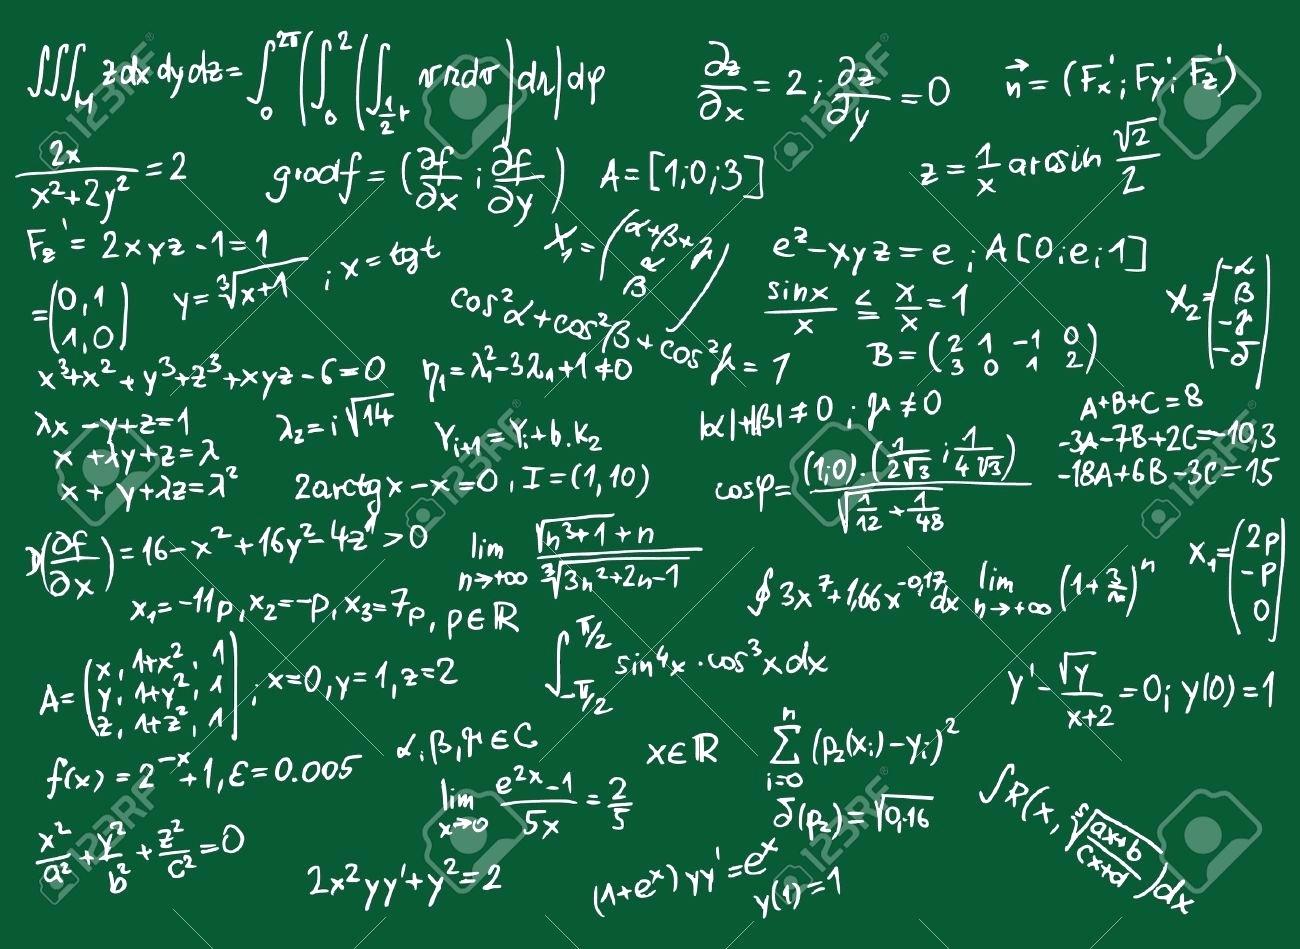 ∫∫∫_M z dx dy dz = ∫_0^{2π} ( ∫_0^2 ( ∫_{½r} r dv | dr | dφ
∂z/∂x = 2 ; ∂z/∂y = 0
n⃗ = (Fx' ; Fy' ; Fz')
2x/(x²+2y²) = 2
grad f = (∂f/∂x ; ∂f/∂y)
A = [1;0;3]
z = 1/x arcsin √2/2
Fz' = 2xyz - 1 = 1
y = ∛(x+1) ; x = tg t
(α+β+γ
α
β)
e^z - xyz = e ; A[0;e;1]
= (0,1
1,0)
cos²α + cos²β + cos²γ = 1
sin x/x ≤ x/x = 1
X₂ = (-α
β
-γ
-δ)
B = (2 1 -1 0
3 0 1 2)
x³+x²+y³+z³+xyz-6=0
η₁ = λ₁²-3λ₁+1 ≠ 0
λx - y + z = 1
x + λy + z = λ
x + y + λz = λ²
λ₂ = i√14
Y_{i+1} = Y_i + b.K₂
|α|+|β| ≠ 0 ; γ ≠ 0
A+B+C=8
-3A-7B+2C=-10,3
-18A+6B-3C=15
2arctg x - x = 0 , I = (1,10)
cosφ = (1;0).(1/(2√3) ; 1/(4√3)) / √(1/12 + 1/48)
(∂f/∂x) = 16 - x² + 16y² - 4z > 0
lim_{n→+∞} (√(n³+1) + n) / ∛(3n²+2n-1)
X₁ = (2p
-p
0)
x₁ = -11p, x₂ = -p, x₃ = 7p, p∈ℝ
∮ 3x⁷+1,66x^{-0,17} dx
lim_{n→+∞} (1+3/n)^n
A = (x, 1+x², 1
y, 1+y², 1
z, 1+z², 1) ; x=0, y=1, z=2
∫_{-π/2}^{π/2} sin⁴x · cos³x dx
y' - √y/(x+2) = 0; y(0) = 1
α,β,γ ∈ C
x∈ℝ
∑_{i=0}^{n} (p₂(xᵢ) - yᵢ)²
f(x) = 2^{-x} + 1, ε = 0.005
lim_{x→0} (e^{2x} - 1)/5x = 2/5
δ(p₂) = √0,16
∫R(x, ⁵√((ax+b)/(cx+d))) dx
x²/a² + y²/b² + z²/c² = 0
2x²yy' + y² = 2
(1+e^x) yy' = e^x
y(1) = 1
123RF